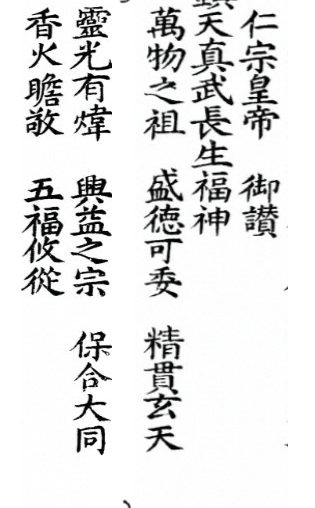 仁宗皇帝 御讚
鎮天真武長生福神
萬物之祖 盛德可委 精貫玄天
靈光有煒 興益之宗 保合大同
香火瞻敬 五福攸從